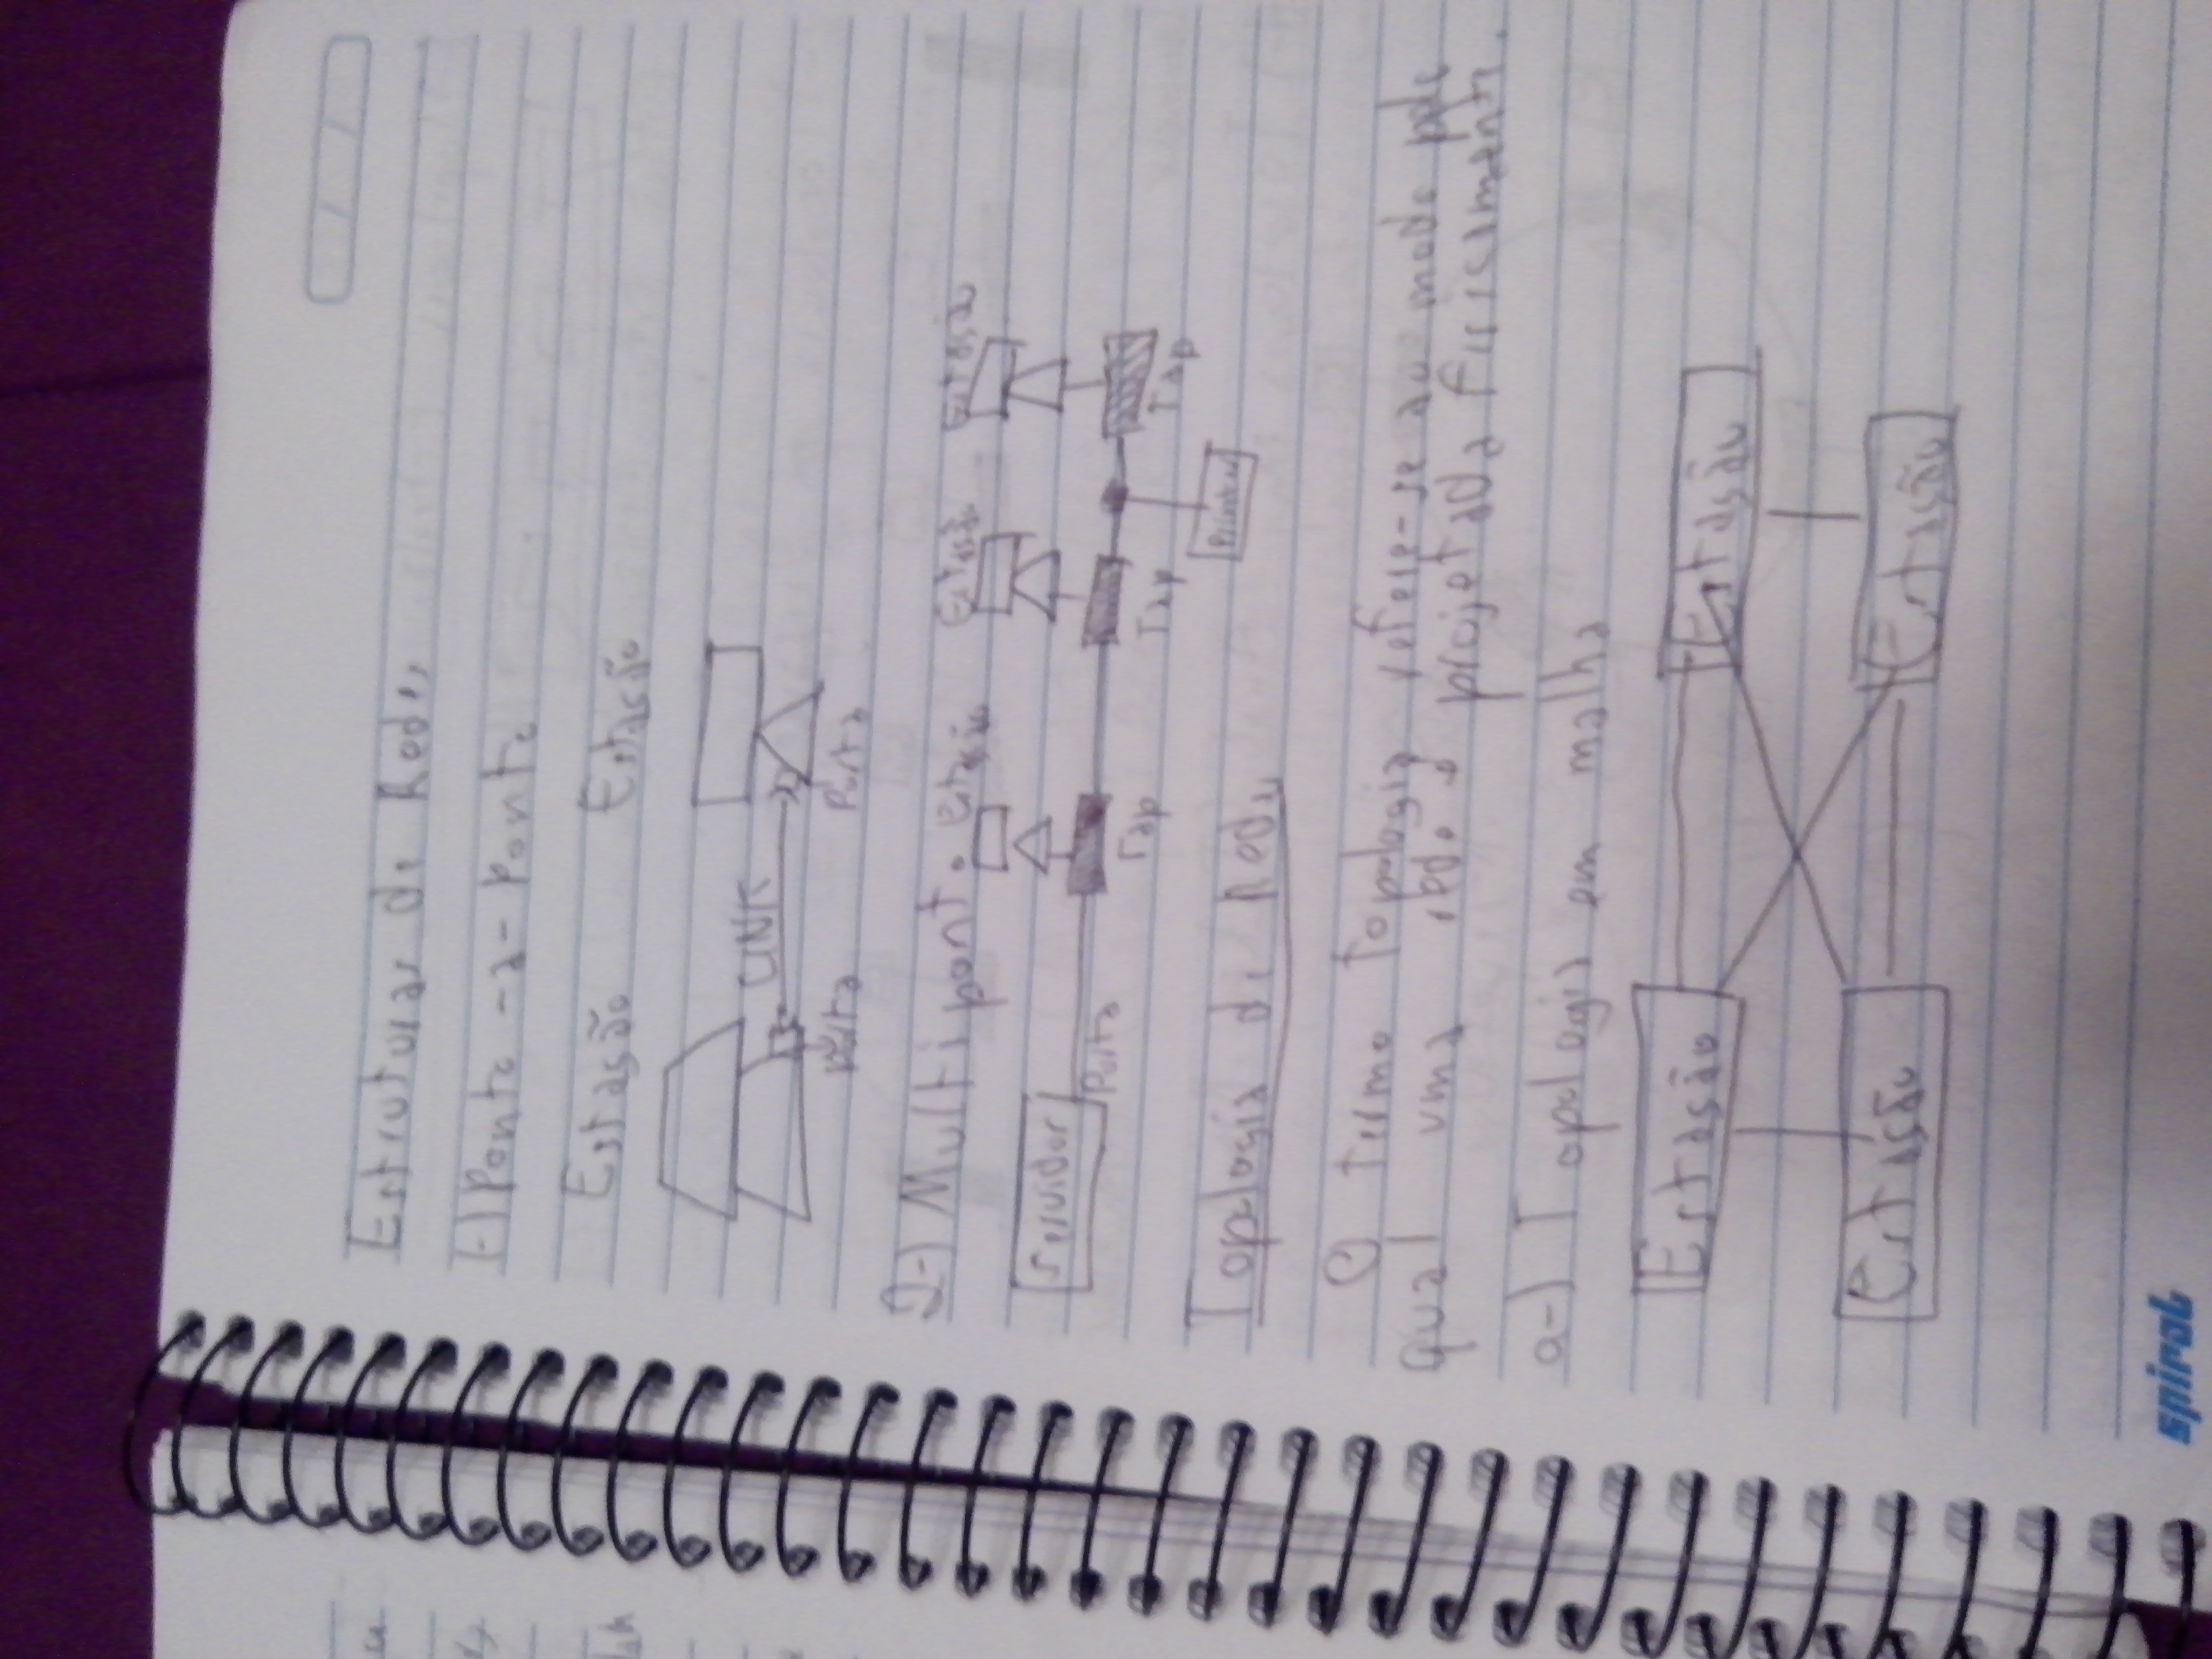 Estruturas de Redes
1-) Ponto -a- Ponto
Estasão Estasão
LINK
Porta Porta
2-) Multiponto Estasão Estasão Estasão
Servidor
Porta
Tap Tap Tap
Printer
Topologia de Rede
O termo topologia refere-se ao modo pelo
qual uma rede é projetada fisicamente.
a-) Topologia em malha
Estasão Estasão
Estasão Estasão
spiral